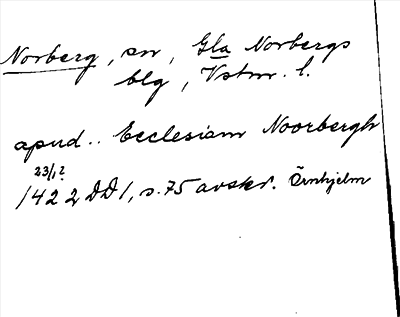 Norberg, sn, Gla Norbergs
blg, Vstm. l.
apud.. Ecclesiam Noorbergh
23/12
1422 DD1, s. 75 avskr. Örnhjelm